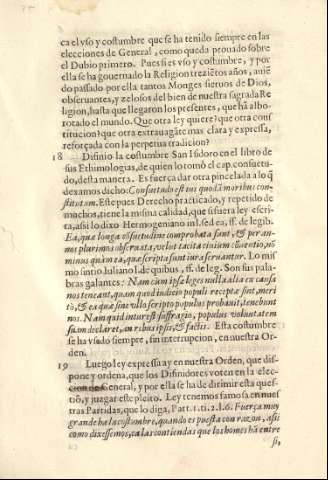 ca el vso y costumbre que se ha tenido siempre en las
elecciones de General, como queda prouado sobre
el Dubio primero. Pues si es vso y costumbre, y por
ella se ha gouernado la Religion treziẽtos años, auiẽ
do passado por ella tantos Monges sieruos de Dios,
obseruantes, y zelosos del bien de nuestra sagrada Re
ligion, hasta que llegaron los presentes, que hã albo-
rotado el mundo. Que otra ley quiere? que otra cons
titucion? que otra extrauagãte mas clara y expressa,
reforçada con la perpetua tradicion?
18 Difinio la costumbre San Isidoro en el libro de
sus Ethimologias, de quien lo tomó el cap. consuetu-
do, desta manera. Es fuerça dar otra pincelada a lo q̃
dexamos dicho: Consuetudo est ius quodã moribus cons-
titutum. Este pues Derecho practicado, y repetido de
muchos, tiene la misma calidad, que si fuera ley escri-
ta, assi lo dixo Hermogeniano in l. sed ea, ff. de legib.
Ea, quæ longa cõsuetudine comprobata sunt, & per an-
nos plurimos obseruata, velut tacita ciuium cõuentio, nõ
minus quàm ea, quæ scripta sunt iura seruantur. Lo mis
mo sintio Iuliano l. de quibus, ff. de leg. Son sus pala-
bras galantes: Nam cum ipsæ leges nulla alia ex causa
nos teneant, quam quod iudicio populi receptæ sunt, meri
tò, & ea quæ sine vllo scripto populus probauit, tenebunt
nos. Nam quid interest suffragio, populus voluntatem
suam declaret, an rebus ipsis, & factis. Esta costumbre
se ha vsado siempre, sin interrupcion, en nuestra Or-
den.
19 Luego ley expressa ay en nuestra Orden, que dis-
pone y ordena, que los Difinidores voten en la elec-
cion de General, y por ella se ha de dirimir esta ques-
tiõ, y juzgar este pleito. Ley tenemos famosa en nues
tras Partidas, que lo diga, Part. 1. ti. 2. l. 6. Fuerça muy
grande ha la costumbre, quando es puesta con razon, assi
como dixessemos, ca las contiendas que los homes hã entre
si,